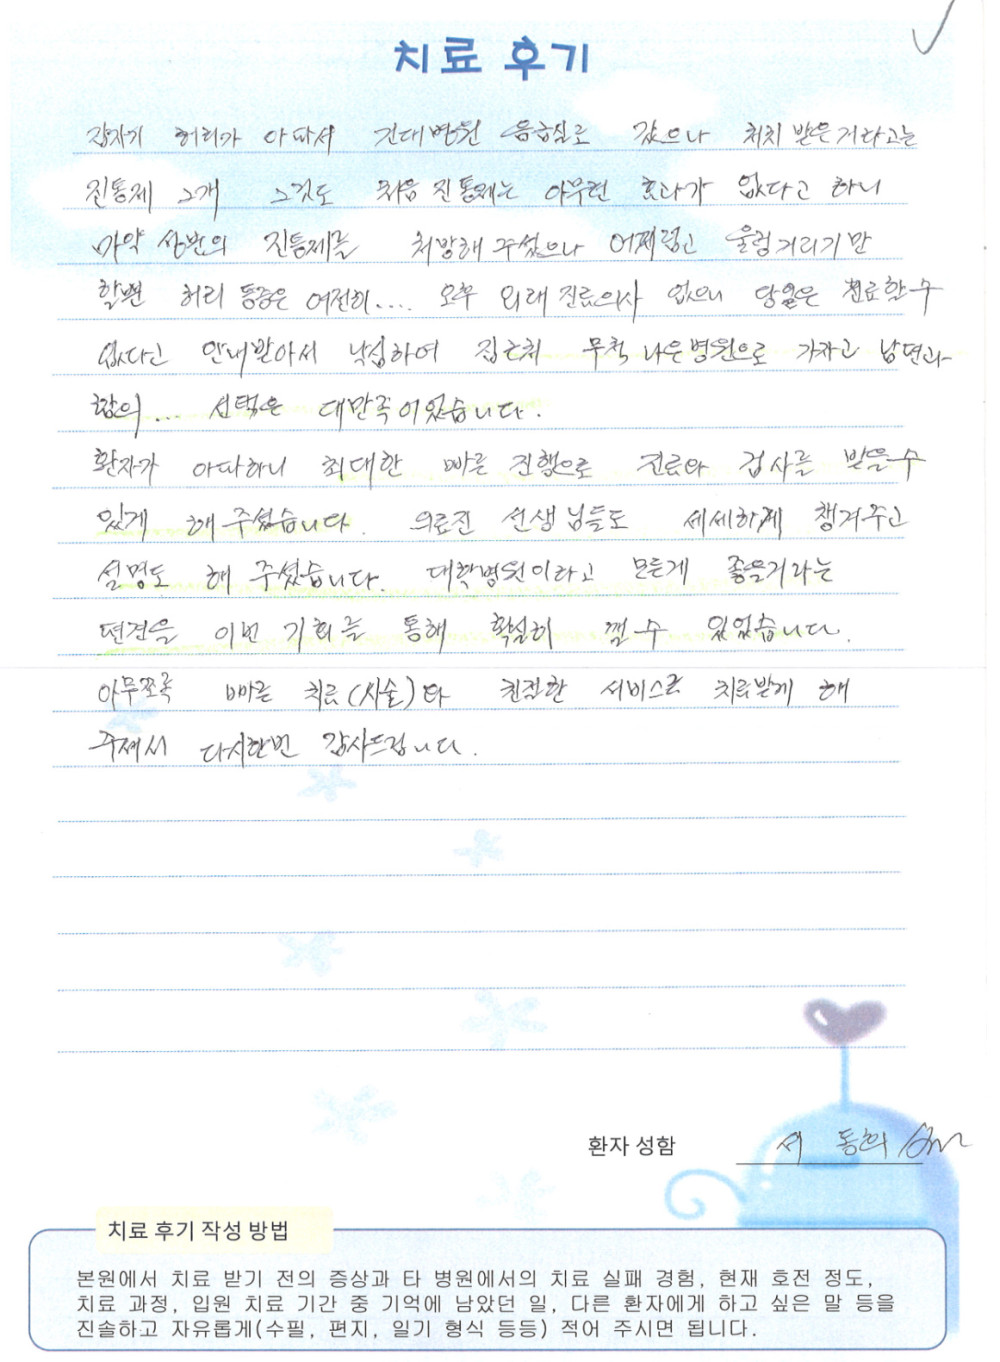 치료 후기
갑자기 허리가 아파서 건대병원 응급실로 갔으나 처치 받은거라고는
진통제 2개 그것도 처음 진통제는 아무런 효과가 없다고 하니
마약 성반의 진통제를 처방해 주셨으나 어찌럽고 울렁거리기만
할뿐 허리 통증은 여전히.... 오후 외래 진료의사 없으니 당일은 진료할수
없다고 안내받아서 낙심하여 집근처 무척 나은병원으로 가자고 남편과
합의... 선택은 대만족이었습니다.
환자가 아파하니 최대한 빠른 진행으로 진료와 검사를 받을수
있게 해 주셨습니다. 의료진 선생님들도 세세하게 챙겨주고
설명도 해 주셨습니다. 대학병원이라고 모든게 좋을거라는
편견을 이번 기회를 통해 확실히 깰 수 있었습니다.
아무쪼록 빠른 치료(시술)와 친절한 서비스로 치료받게 해
주셔서 다시한번 감사드립니다.
환자 성함 서 동희
치료 후기 작성 방법
본원에서 치료 받기 전의 증상과 타 병원에서의 치료 실패 경험, 현재 호전 정도,
치료 과정, 입원 치료 기간 중 기억에 남았던 일, 다른 환자에게 하고 싶은 말 등을
진솔하고 자유롭게(수필, 편지, 일기 형식 등등) 적어 주시면 됩니다.